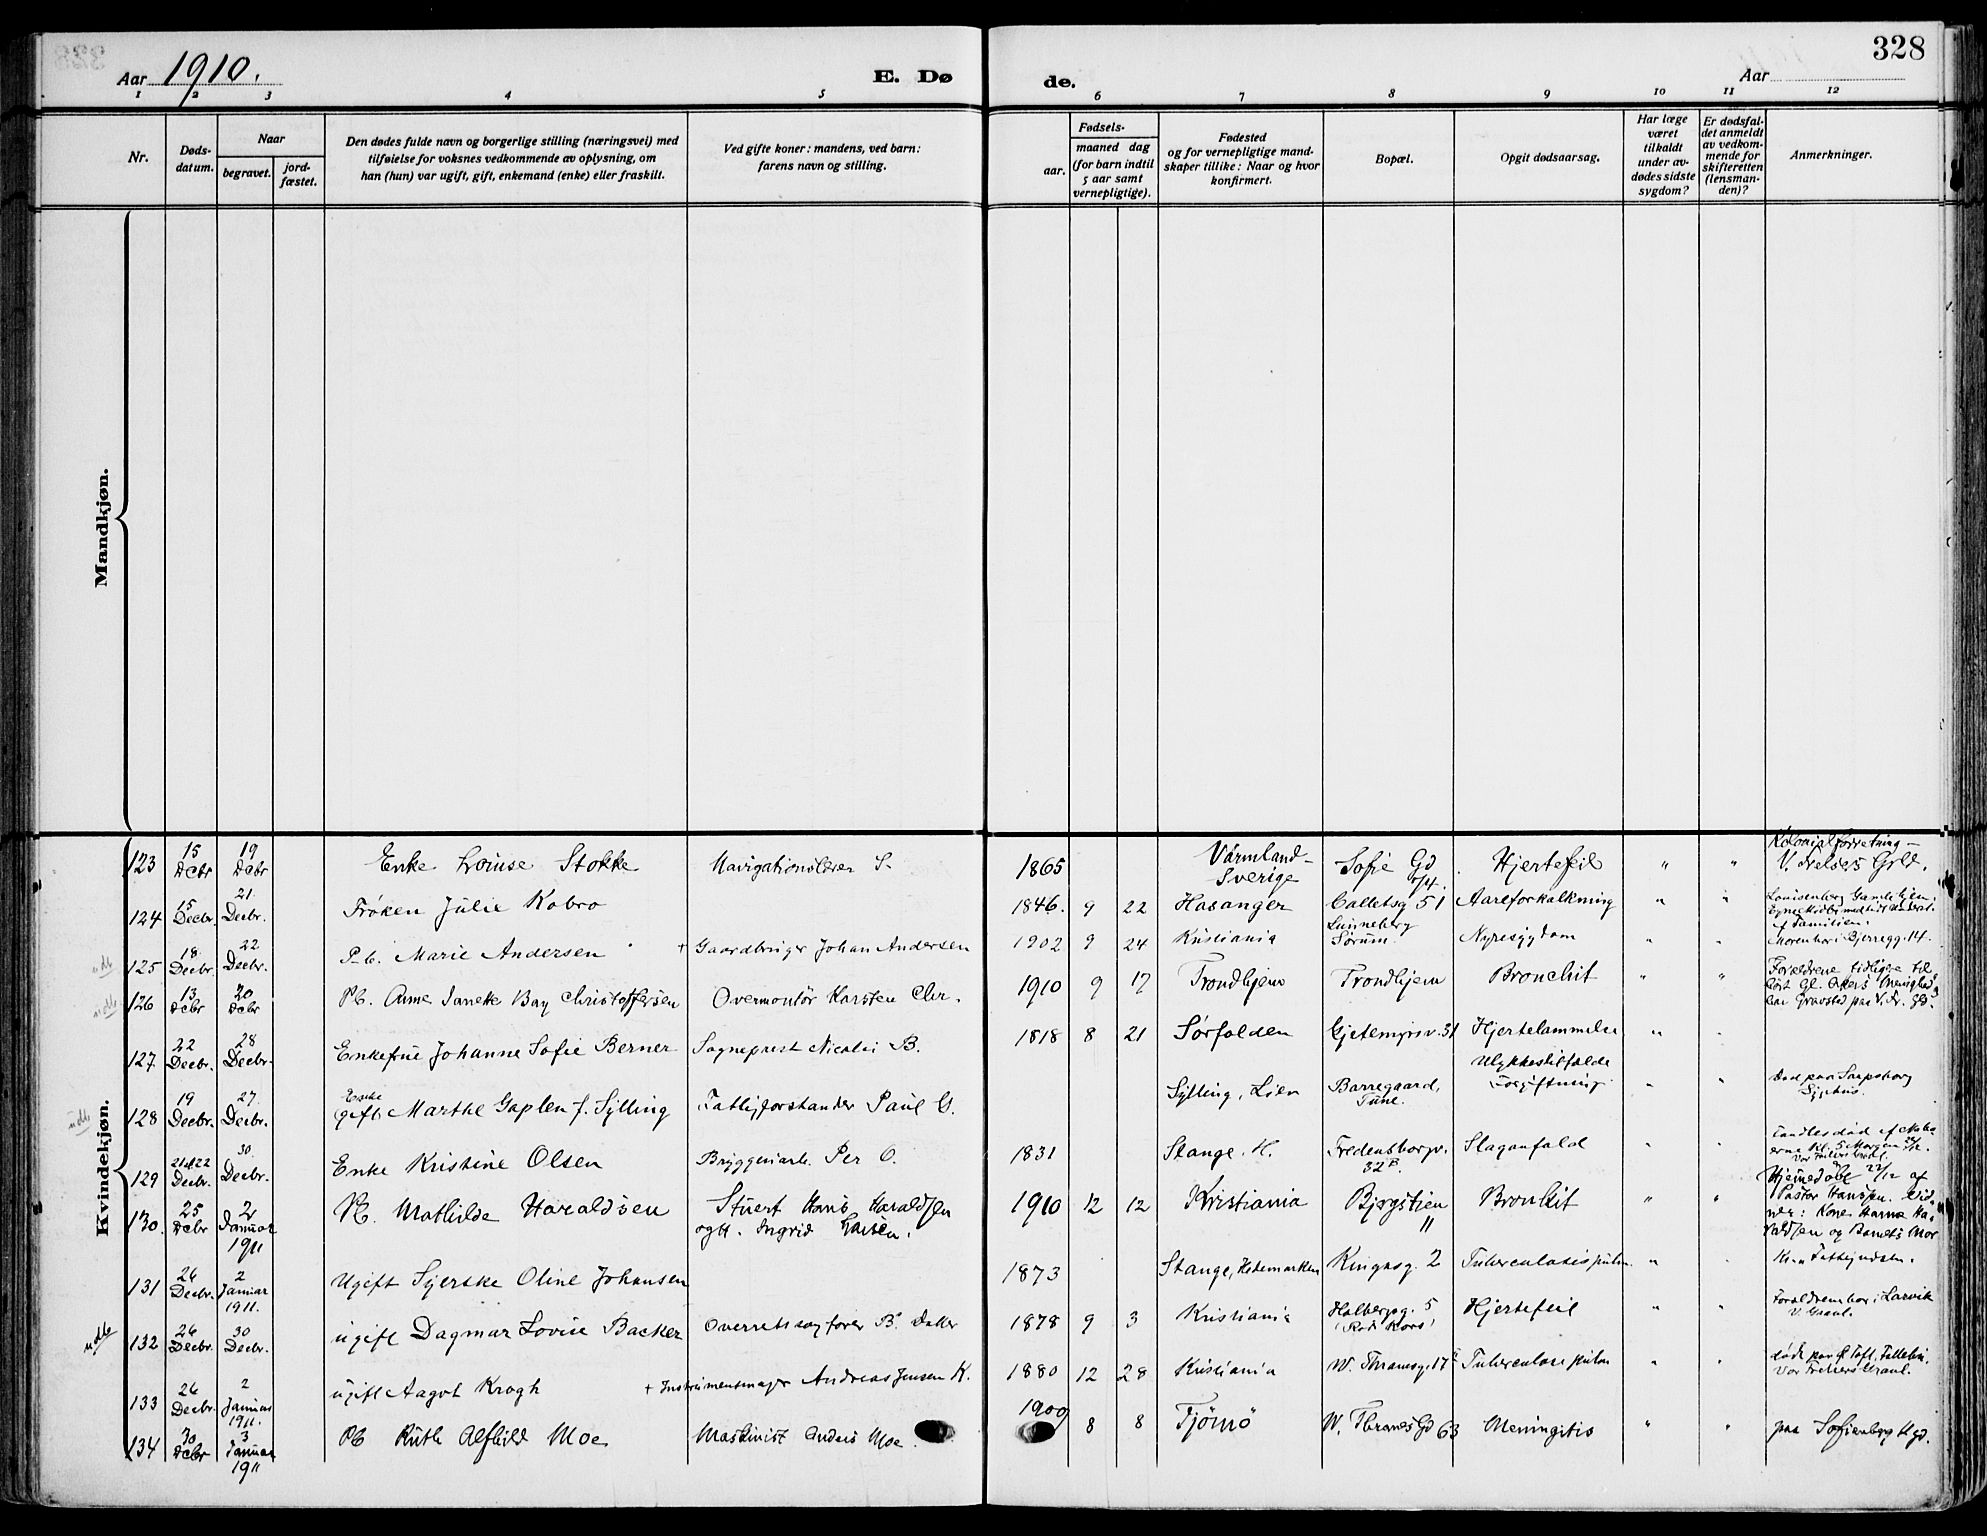 328
Aar 1910.
E. Dø
de.
Aar
1 2 3 4 5 6 7 8 9 10 11 12
Nr.
Døds-
datum.
Naar
begravet.
jord-
fæstet.
Den dødes fulde navn og borgerlige stilling (næringsvei) med
tilføielse for voksnes vedkommende av oplysning, om
han (hun) var ugift, gift, enkemand (enke) eller fraskilt.
Ved gifte koner: mandens, ved barn:
farens navn og stilling.
Fødsels-
aar.
maaned dag
(for barn indtil
5 aar samt
vernepligtige).
Fødested
og for vernepligtige mand-
skaper tillike: Naar og hvor
konfirmert.
Bopæl.
Opgit dødsaarsag.
Har læge
været
tilkaldt
under av-
dødes sidste
sygdom?
Er dødsfal-
det anmeldt
av vedkom-
mende for
skifteretten
(lensman-
den)?
Anmerkninger.
Mandkjøn.
Kvindekjøn.
123 15 Dcbr 19 Dcbr Enke Louise Stokke Navigationslærer S. 1865 Värmland - Sverige Sofie Gd Hjertefeil " " Kolonialforretning -
124 15 Decbr. 21 Decbr. Frøken Julie Kobro 1846. 9 22 Hasanger Colletsg 51 Aareforkalkning " "
125 18 Decbr. 22 Decbr. P.b. Marie Andersen + Gaardbruger Johan Andersen 1902 9 24 Kristiania Lunneberg Sørum. Nyresygdom " " Moren bor i Bjerregg. 14.
126 13 Dcbr 20 Dcbr Pb. Anne Janeke Bay Christoffersen Overmontør Karsten Chr. 1910 9 17 Trondhjem Trondhjem Bronchit " " Forældrene tidligere til-
hørt Gl. Akers Menighed,
har Gravsted paa V. Fr. Gd.
127 22 Decbr. 28 Decbr. Enkefrue Johanne Sofie Berner Sogneprest Nicolai B. 1818 8 21 Sørfolden Gjetemyrsv. 31 Hjertelammelse "
128 19 Decbr. 27. Decbr. Enke (gift) Marthe Gaplen f. Sylling Fattigforstander Paul G. Sylling, Lier Borregaard, Tune. Ulykkestilfælde Forgiftning " " Død paa Sarpsborg
Sygehus.
129 21 el 22 Decbr. 30. Decbr. Enke Kristine Olsen Bryggeriarb. Per O. 1831 Stange. H. Fredensborgv. 32B. Slaganfald " "
Vor Frelsers Gravl.
130. 25 Dcbr 2 Januar 1911 Pb. Mathilde Haraldsen Stuert Hans Haraldsen
og H. Ingrid Larsen. 1910 12 12 Kristiania Bjergstien 11 Bronkit " " Hjemedøbt 22/12 af
Pastor Hansen.
131 26 Decbr. 2 Januar 1911. Ugift Sjerske Oline Johansen 1873 Stange, Hedemarken Kingosg. 2 Tuberculosis pulm. "
132 26 Decbr. 30 Decbr. ugift Dagmar Lovise Backer Overretssagfører B. 1878 9 3 Kristiania Holbergsg. 5 (Röd Kors) Hjertefeil " " Forældrene bor i Larvik
V. Gravl.
133 26 Decbr. 2 Januar 1911. ugift Aagot Krogh + Instrumentmager Andreas Jensen K. 1880 12 28 Kristiania W. Thranesg. 17 Tuberculose pulm " "
Vor Frelsers Gravl.
134 30 Dcbr 3 Januar 1911 Pb Ruth Alfhild Moe Maskinist Anders Moe. 1909 8 8 Tjømø W. Thranes Gd 63 Meningitis " " paa Sofienberg Kgd.